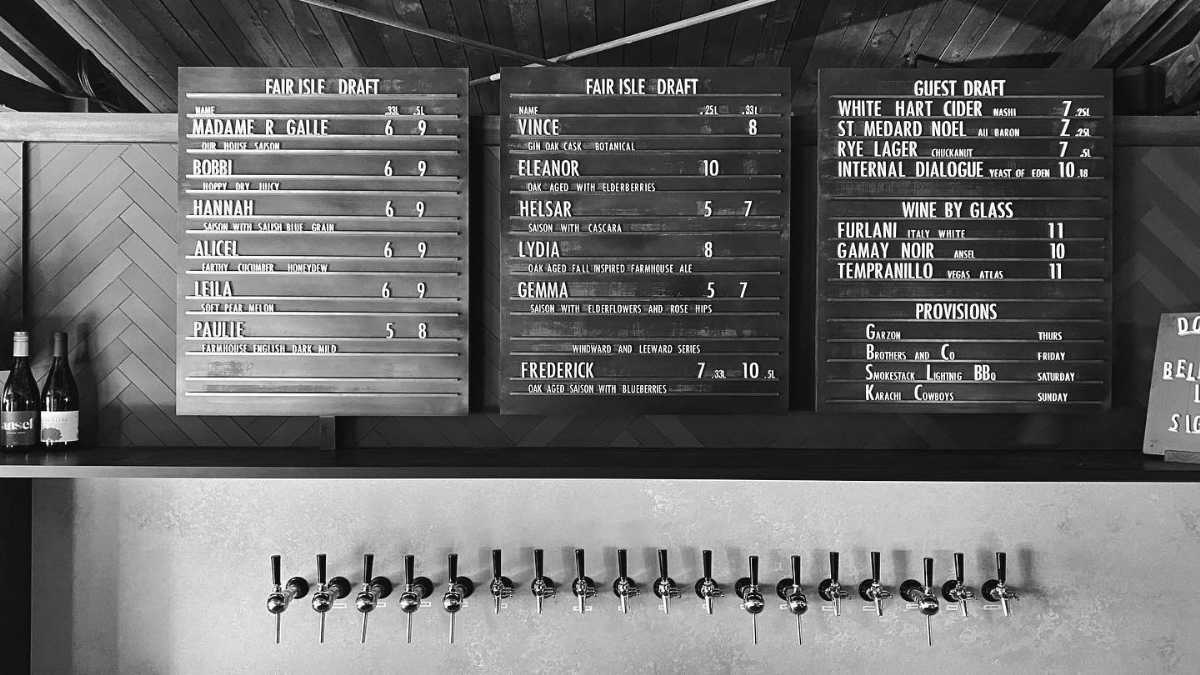 FAIR ISLE DRAFT
NAME .33L .5L
MADAME R GALLE 6 9
OUR HOUSE SAISON
BOBBI 6 9
HOPPY DRY JUICY
HANNAH 6 9
SAISON WITH SALISH BLUE GRAIN
ALICEL 6 9
EARTHY CUCUMBER HONEYDEW
LEILA 6 9
SOFT PEAR MELON
PAULIE 5 8
FARMHOUSE ENGLISH DARK MILD
FAIR ISLE DRAFT
NAME .25L .33L
VINCE 8
GIN OAK CASK BOTANICAL
ELEANOR 10
OAK AGED WITH ELDERBERRIES
HELSAR 5 7
SAISON WITH CASCARA
LYDIA 8
OAK AGED FALL INSPIRED FARMHOUSE ALE
GEMMA 5 7
SAISON WITH ELDERFLOWERS AND ROSE HIPS
WINDWARD AND LEEWARD SERIES
FREDERICK 7 .33L 10 .5L
OAK AGED SAISON WITH BLUEBERRIES
GUEST DRAFT
WHITE HART CIDER NASHI 7 .25L
ST. MEDARD NOEL AU BARON 7 .25L
RYE LAGER CHUCKANUT 7 .5L
INTERNAL DIALOGUE YEAST OF EDEN 10 .18
WINE BY GLASS
FURLANI ITALY WHITE 11
GAMAY NOIR ANSEL 10
TEMPRANILLO VEGAS ATLAS 11
PROVISIONS
GARZON THURS
BROTHERS AND CO FRIDAY
SMOKESTACK LIGHTNIG BBQ SATURDAY
KARACHI COWBOYS SUNDAY
ansel